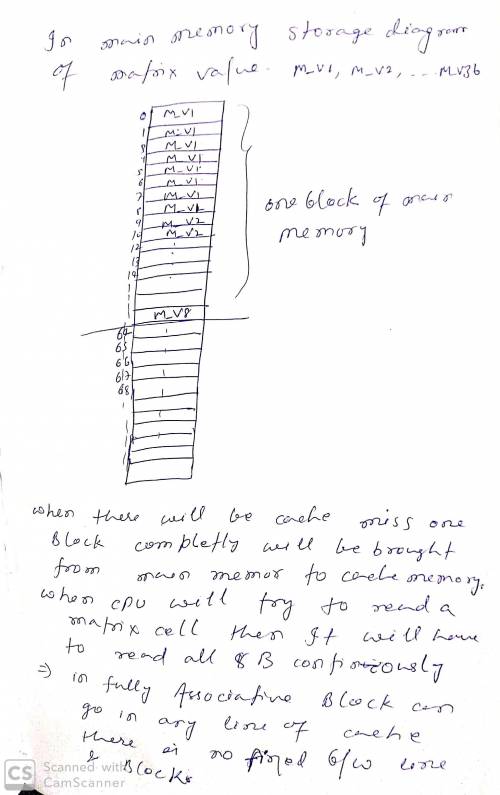 In main memory storage diagram
of matrix value. M_V1, M_V2, ... M_V36
0 M_V1
1 M_V1
3 M_V1
4 M_V1
5 M_V1
6 M_V1
7 M_V1
8 M_V1
9 M_V2
10 M_V2
12
13
14
one block of main
memory
M_V8
64
65
66
67
68
when there will be cache miss one
Block completly will be brought
from main memor to cache memory.
when CPU will try to read a
matrix cell then It will have
to read all 8 B continuously
⇒ in fully Associative Block can
go in any line of cache
there is no fixed b/w line
& Blocks
CS Scanned with
CamScanner